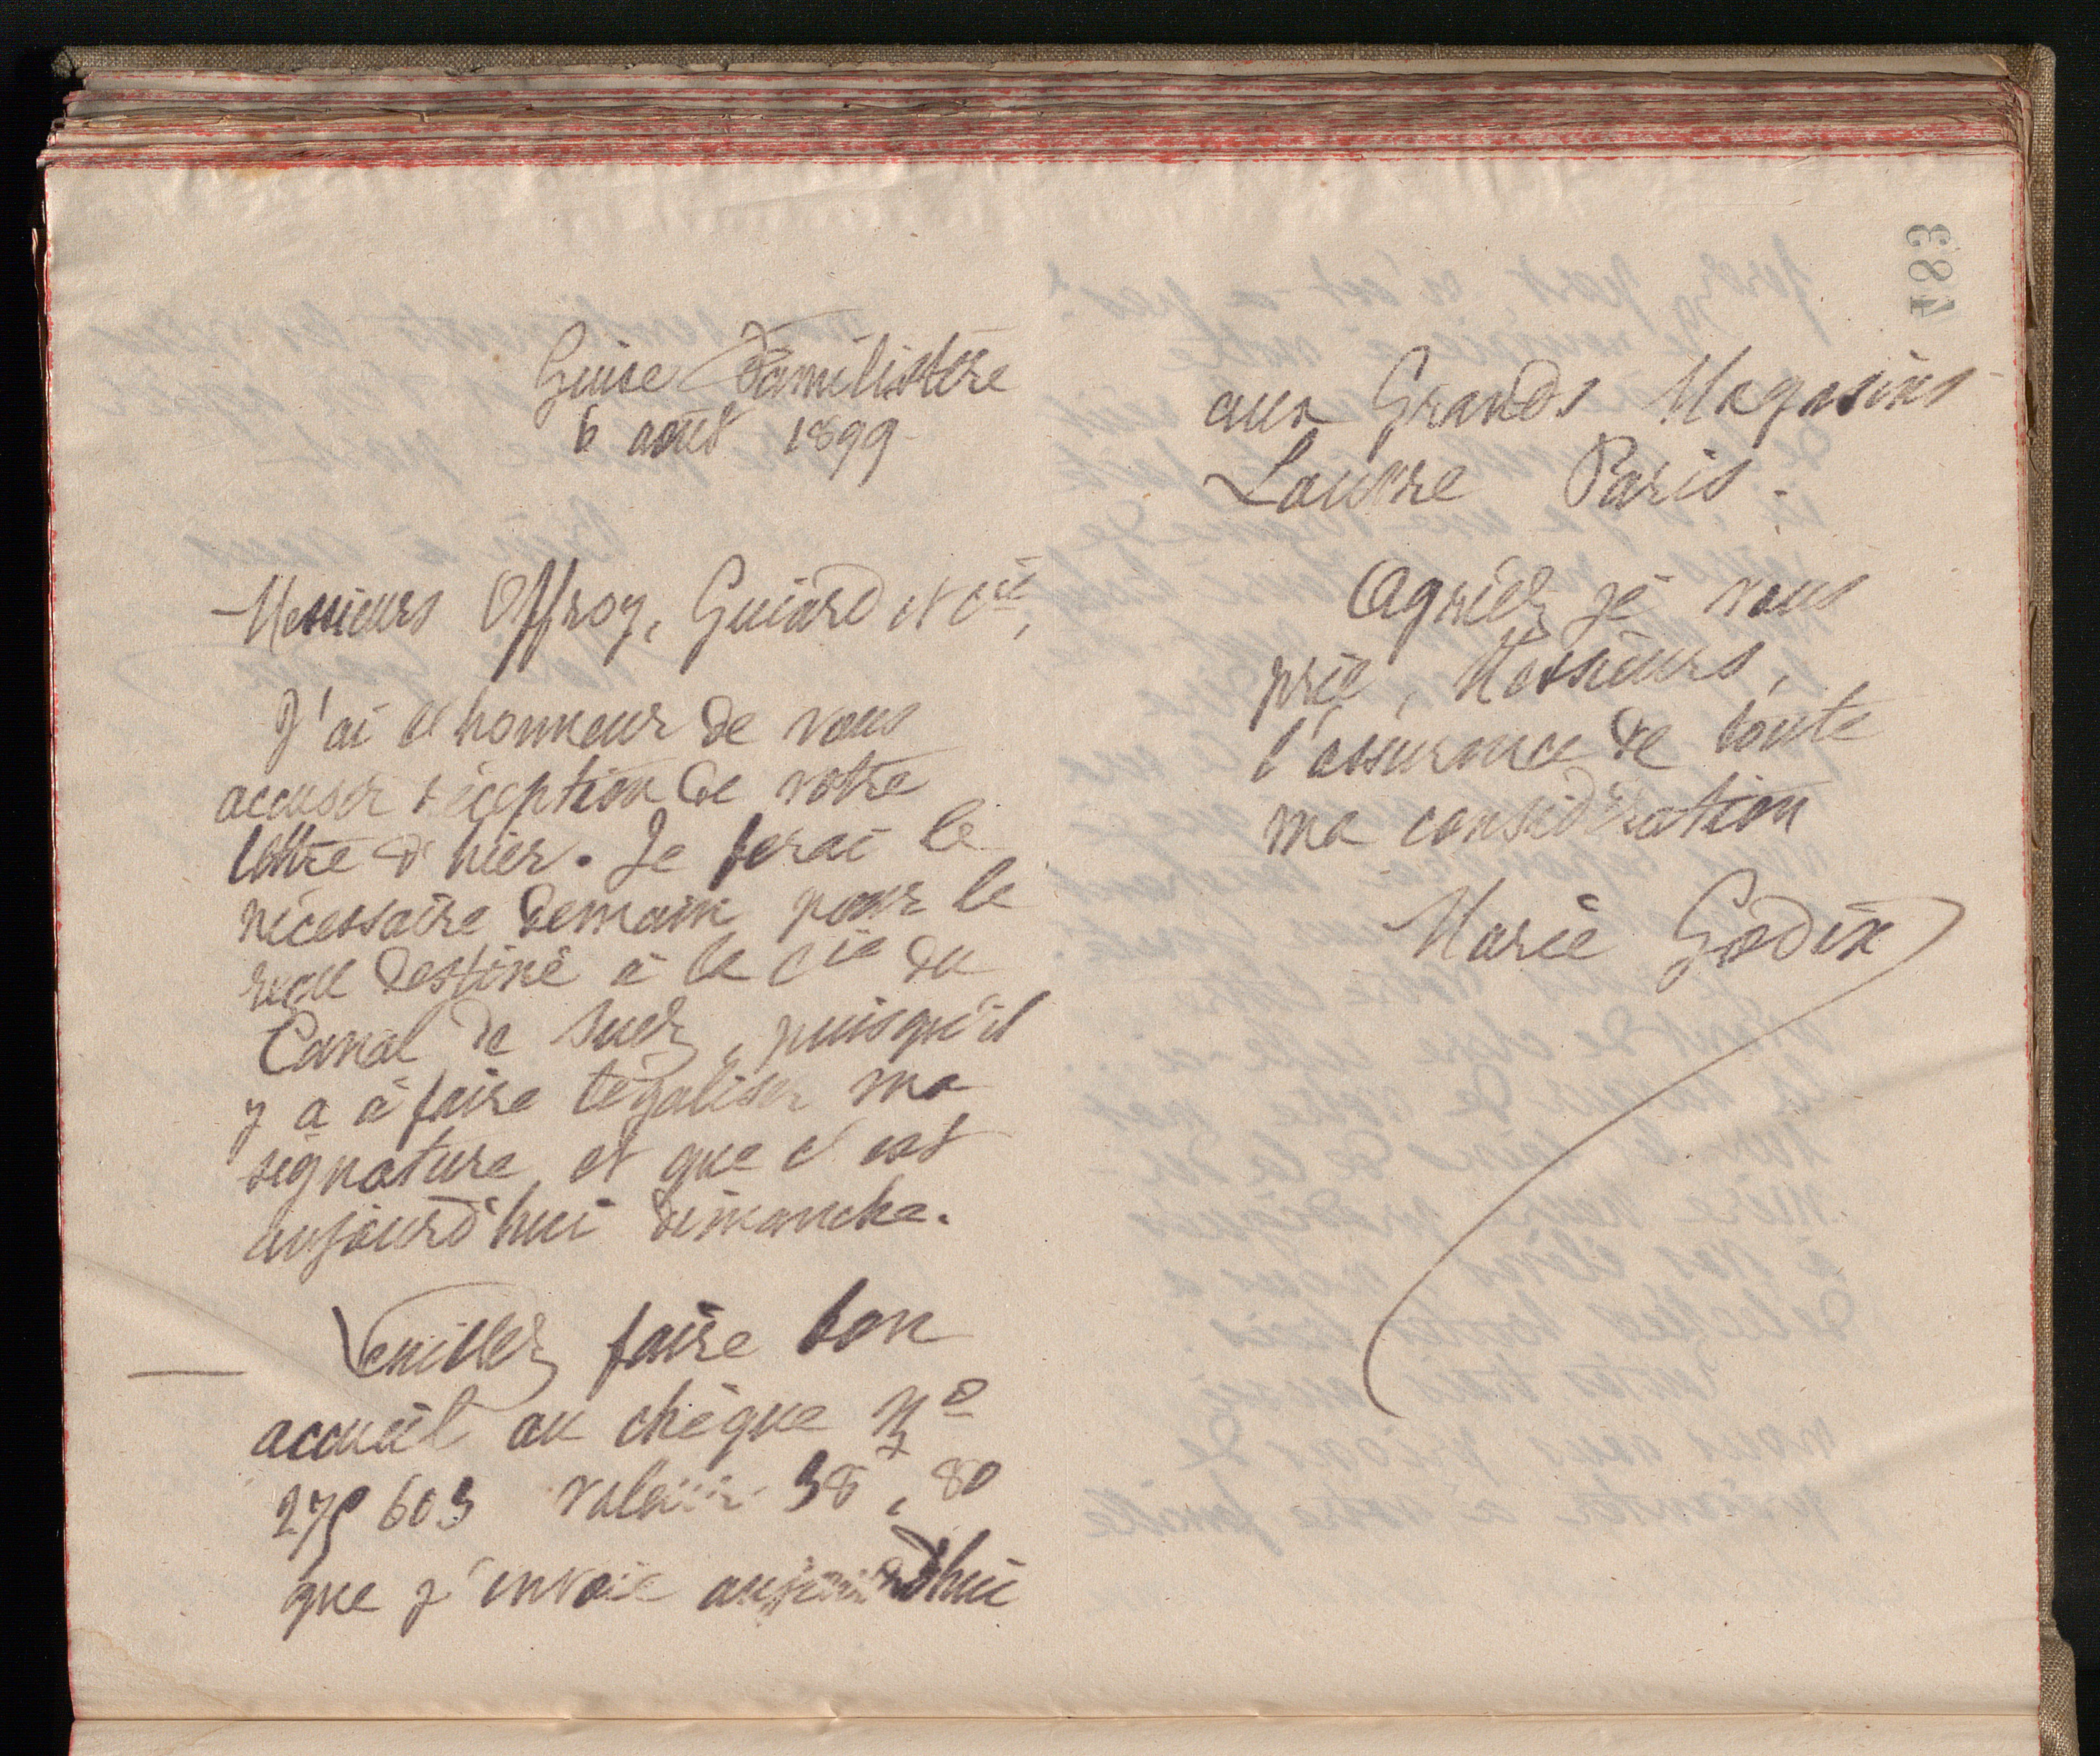 Guise Familistère
6 août 1899
Messieurs Offroy, Guiard et Cie,
J'ai l'honneur de vous
accuser réception de votre
lettre d'hier. Je ferai le
nécessaire demain pour le
reçu destiné à la Cie du
Canal de Suez, puisqu'il
y a à faire légaliser ma
signature et que c'est
aujourd'hui dimanche.
Veuillez faire bon
accueil au chèque No
275 603 valeur 38f,80
que j'envoie aujourd'hui
483
aux Grands Magasins
Louvre Paris.
Agréez je vous
prie, Messieurs,
l'assurance de toute
ma considération
Marie Godin